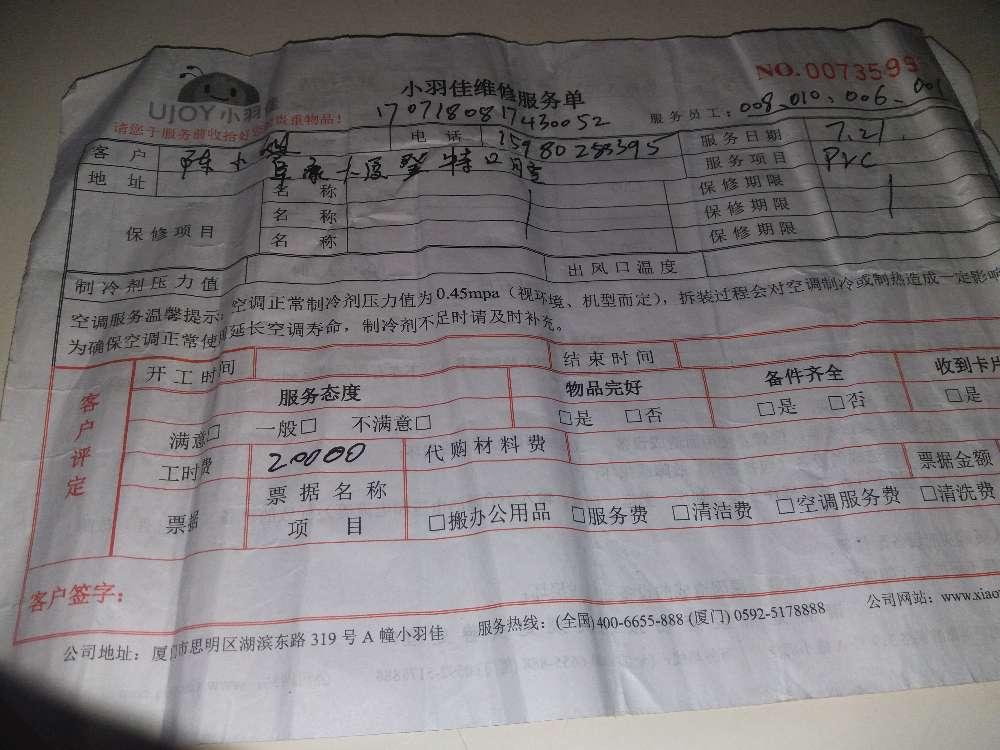 UJOY小羽佳
小羽佳维修服务单
NO.0073599
请您于服务前收拾好您的贵重物品!
17071808017430052
服务员工: 008、010、006、001
客 户 陈 电 话 15980283395 服务日期 7.21
地 址 服务项目 PVC
保修项目 名 称 保修期限
名 称 保修期限
名 称 保修期限
制冷剂压力值 出风口温度
空调服务温馨提示: 空调正常制冷剂压力值为0.45mpa(视环境、机型而定),拆装过程会对空调制冷或制热造成一定影响
为确保空调正常使 延长空调寿命,制冷剂不足时请及时补充。
客户评定
开工时间 结束时间
服务态度 物品完好 备件齐全 收到卡片
满意□ 一般□ 不满意□ □是 □否 □是 □否 □是
工时费 20000 代购材料费
票据 票据名称 票据金额
项 目 □搬办公用品 □服务费 □清洁费 □空调服务费 □清洗费
客户签字:
公司地址: 厦门市思明区湖滨东路319号A幢小羽佳 服务热线: (全国)400-6655-888 (厦门) 0592-5178888 公司网站: www.xiao